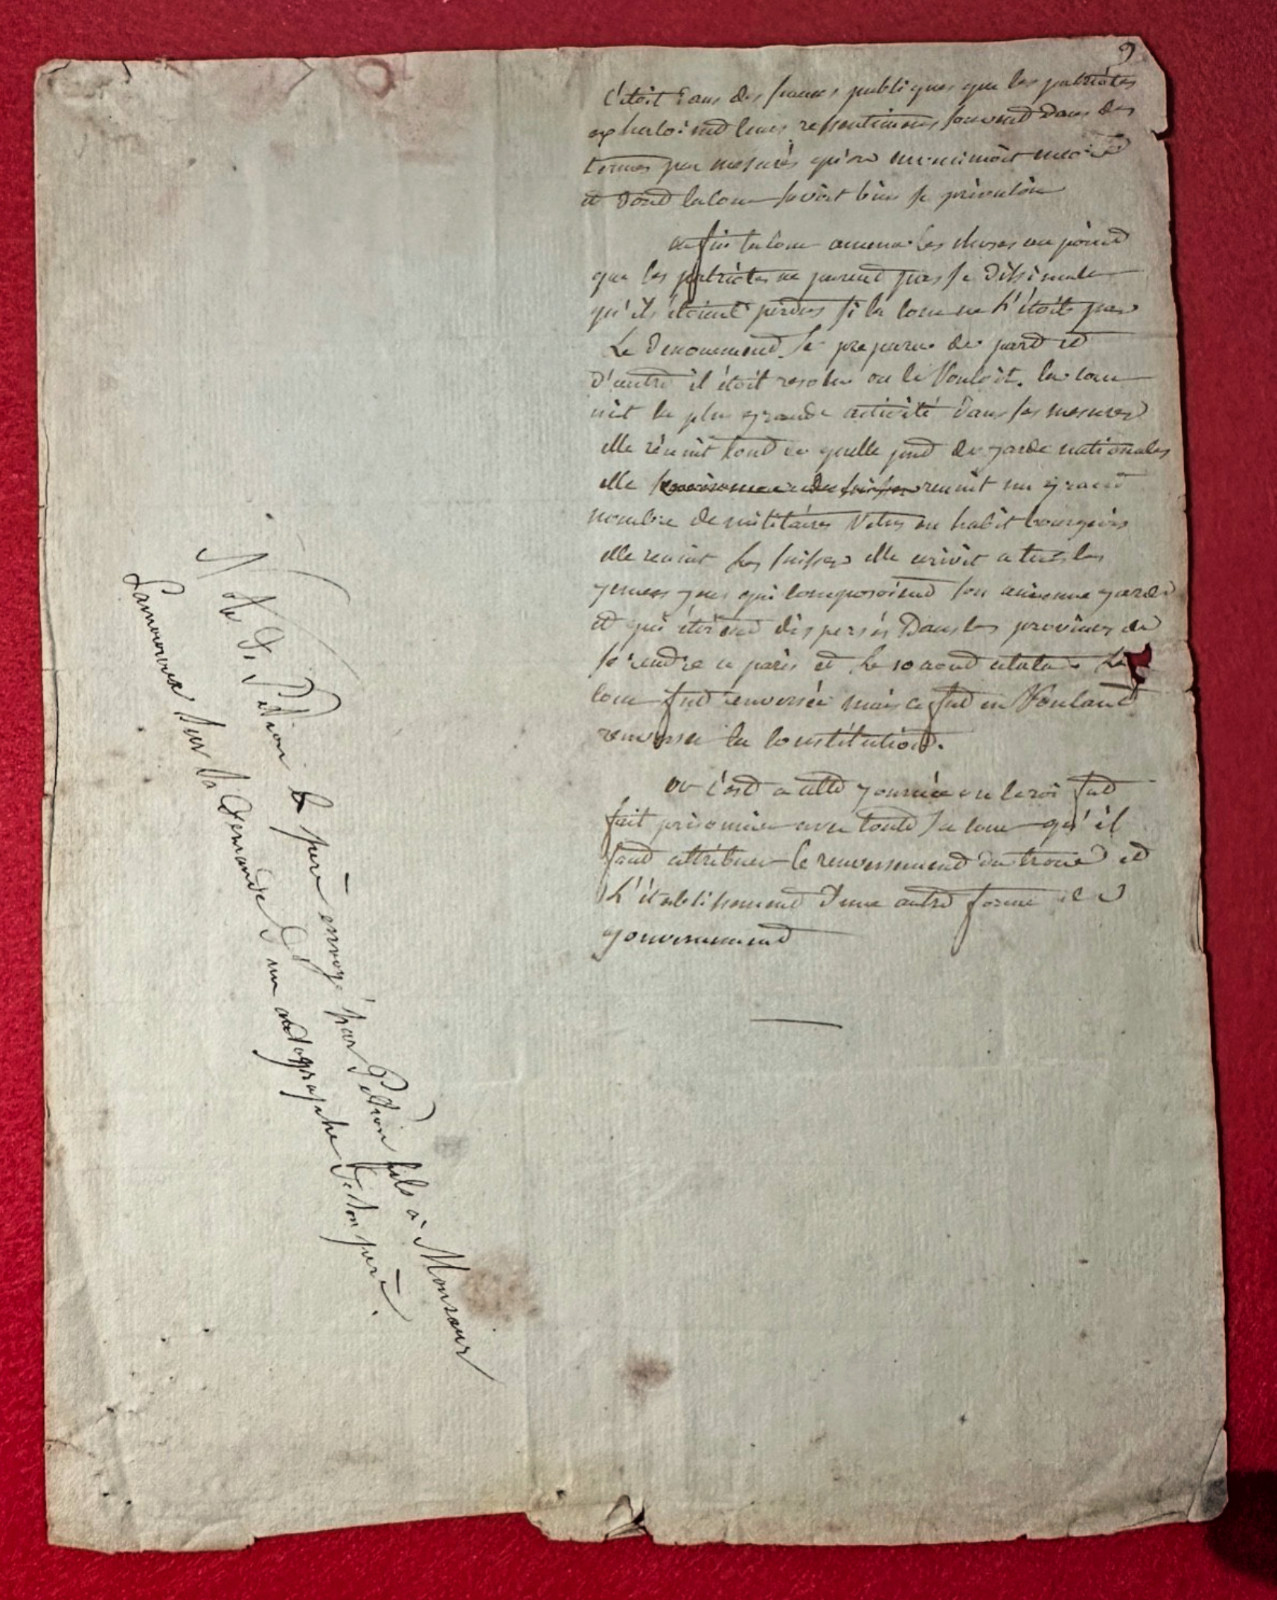 9
c'étoit dans des séances publiques que les patriotes
exhaloient leurs ressentiments souvent dans des
termes peu mesurés qu'on
et dont la cour savoit bien se prévaloir
enfin la cour amena les choses au point
que les patriotes ne purent pas se dissimuler
qu'ils étoient perdus si la cour ne l'étoit pas
Le denouement se prepara de part et
d'autre il étoit resolu on le vouloit. la cour
mit la plus grande activité dans ses mesures
elle réunit tout ce quelle put de garde nationales
elle reunit un grand
nombre de militaires vetus en habit bourgeois
elle reunit les suisses elle écrivit a tous les
jeunes gens qui composoient son ancienne garde
et qui étoient dispersés dans les provinces de
se rendre a paris et le 10 aout éclata. La
cour fut renversée mais ce fut en voulant
renverser la constitution.
or c'est a cette journée ou le roi fut
fait prisonnier avec toute sa cour qu'il
faut attribuer le renversement du trone et
l'établissement d'une autre forme de
gouvernement
Note de Pétion le père envoyé par Pétion fils à Monsieur
Lamouroux sur la demande d'un autographe de son père.